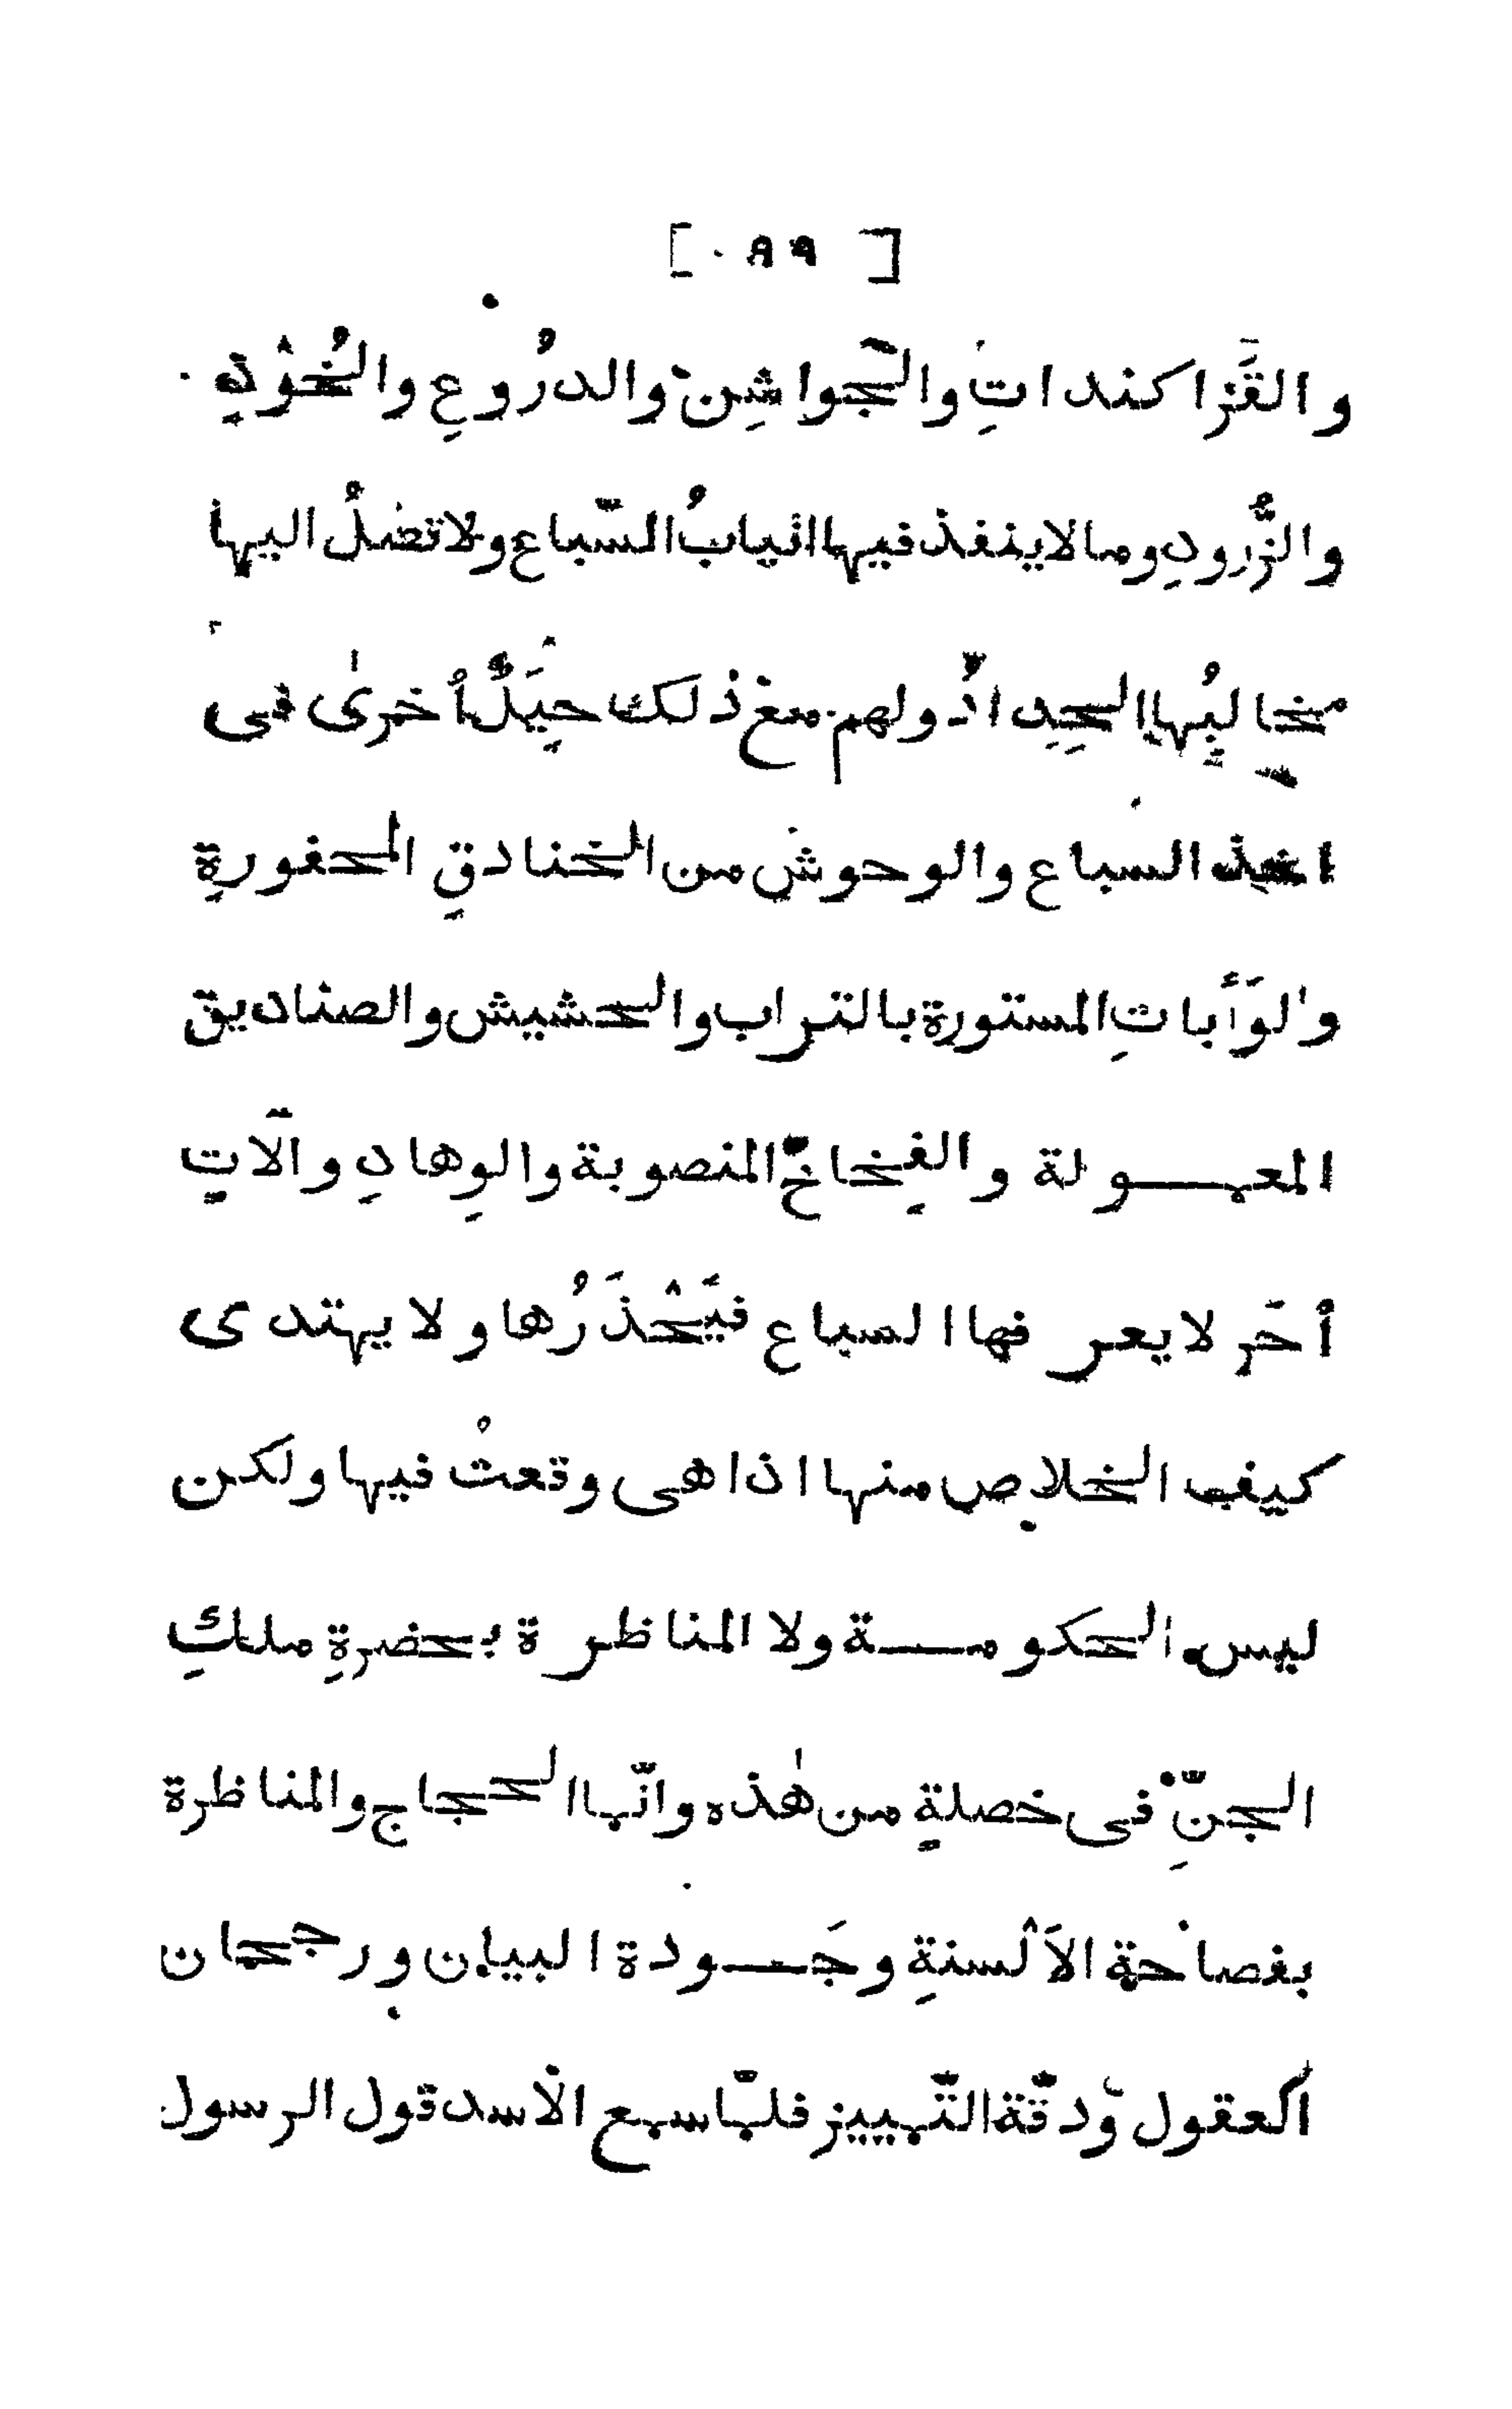 [ ٨٩ ]
والقَزاكنداتِ والجّواشِن والدرُوعِ والخُوْدِ
والزُّرودِ وما لا ينفذ فيها انيابُ السّباع ولا تصلُ اليها
مخالبُها الحِدادُ ولهم مع ذلك حِيَلٌ أخرىٰ فى
اخذ السباع والوحوش من الخنادقِ المحفورةِ
والوَأباتِ المستورة بالتراب والحشيش والصناديق
المعمولة والفِخاخ المنصوبة والوِهادِ وآلاتٍ
أُخَر لا يعرفها السباع فيَحْذَرُها ولا يهتدى
كيف الخلاص منها اذا هى وقعتْ فيها ولكن
ليس الحكومة ولا المناظرة بحضرةِ ملكِ
الجنِّ فى خصلةٍ من هٰذه وانّما الحجاج والمناظرة
بفصاحة الاَلْسنةِ وجَودة البيان ورجحان
العقول ودقّة التّمييز فلمّا سمع الاسد قول الرسول